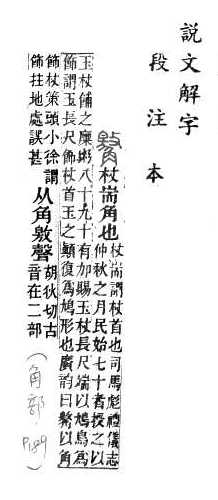 說文解字
段注本
杖耑角也
杖耑謂杖首也司馬彪禮儀志
仲秋之月民始七十者授之以
玉杖餔之糜粥八十九十有加賜玉杖長尺端以鳩鳥爲
飾謂玉長尺飾杖首玉之顛復爲鳩形也廣韵曰以角
飾杖策頭小徐謂
飾拄地處誤甚
从角敫聲
胡狄切古
音在二部
(角部 P189)